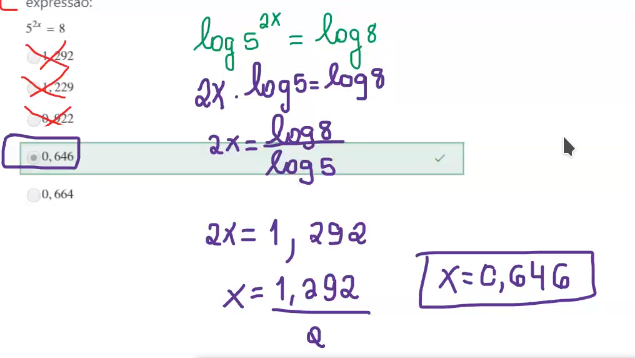 expressão:
5^{2x} = 8
1,292
1,229
0,922
0,646
0,664
log 5^{2x} = log 8
2x . log 5 = log 8
2x = log 8 / log 5
2x = 1, 292
x = 1,292 / 2
x = 0,646